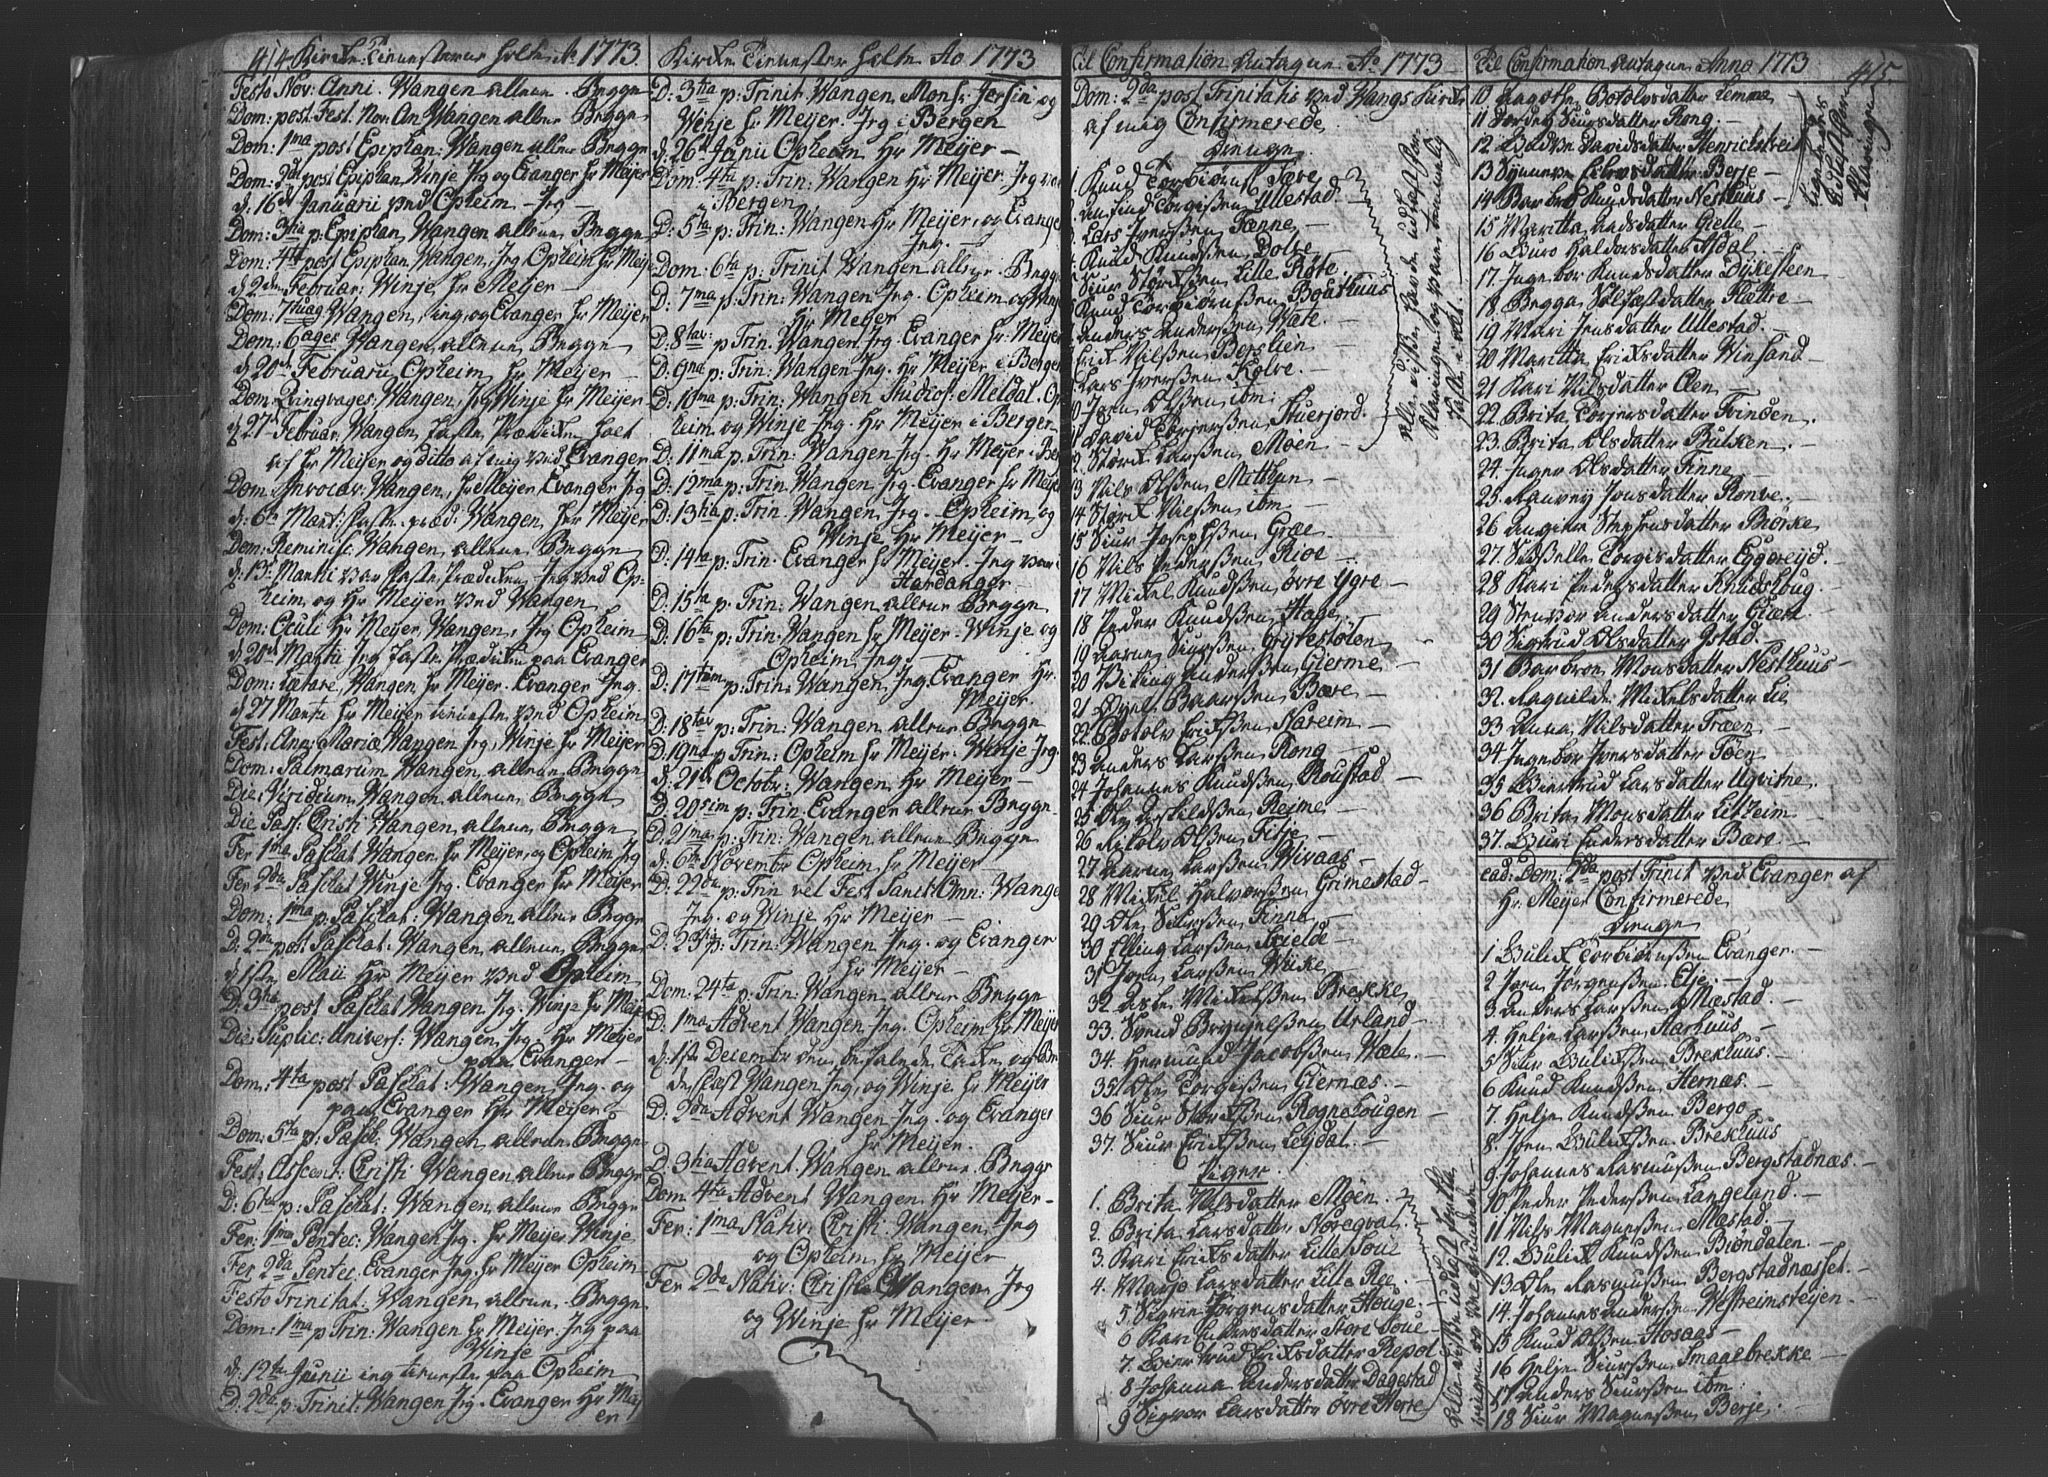 414 Kirke Tienesterne holte Ao 1773
Festo Nov: Anni. Wangen allene Begge
Dom: post. Fest. Nov. An Wangen allene Begge
Dom: 1ma post Epiphan: Wangen allene Begge
Dom: 2da post Epiphan Winje Jeg og Evanger Hr Meijer
d: 16d Januarii ved Opheim Jeg
Dom: 3tia p: Epiphan Wangen allene Begge
Dom: 4ta post Epiphan Wangen Jeg Opheim Hr Meijer
d 2den Februar: Winje Hr Meijer
Dom: 7tuag Wangen, jeg og Evanger Hr Meijer
Dom: 6ages Wangen allene Begge
d 20de Februarii Opheim Hr Meijer
Dom: Qvinqvages Wangen, Jeg Winje Hr Meijer
d 27 Februar Wangen Faste Prædiken holt
af Hr Meijer og ditto af mig ved Evanger
Dom: Invocav: Wangen, Hr Meijer Evanger Jeg
d: 6te Mart: Faste præd: Wangen Hr Meijer
Dom: Reminisc: Wangen allene Begge
d: 13 Martii var Faste Prædiken Jeg ved Op-
heim og Hr Meijer ved Wangen
Dom: Oculi Hr Meijer Wangen, Jeg Opheim
d 20de Martii Jeg Faste Prædiken paa Evanger
Dom: Lætare, Wangen Hr Meijer Evanger Jeg
d 27 Martii Hr Meijer tieneste ved Opheim
Fest: Ann: Mariæ Wangen Jeg, Winje Hr Meijer
Dom: Palmarum Wangen allene Begge
Die: Viridium Wangen allene Begge
Die Pass: Cristi Wangen allene Begge
Fer 1ma Paschat Wangen Hr Meijer og Opheim Jeg
Fer 2da Paschat Winje Jeg. Evanger Hr Meijer
Dom: 1ma p: Paschat: Wangen allene Begge
D: 2da post Paschat: Wangen allene Begge
d 1ste Maii Hr Meijer ved Opheim
D: 3tia post Paschat Wangen Jeg. Winje Hr Meijer
Die: Suplic: Univers: Wangen Jeg, Hr Meijer
paa Evanger
Dom: 4ta post Paschat: Wangen Jeg. og
paa Evanger Hr Meijer
Dom: 5ta p: Pasch: Wangen allene Begge
Fest: Ascent: Cristi Wangen allene Begge
D: 6ta p: Paschat: Wangen allene Begge
Fer: 1ma Pentec: Wangen Jeg. Hr Meijer Winje
Fer 2da Pentec Evanger Jeg. Hr Meijer Opheim
Festo Trinitat: Wangen allene Begge
Dom: 1ma p Trin: Wangen Hr Meijer Jeg paa
Winje
d: 12te Junii jeg tieneste paa Opheim
D: 2da p: Trinit: Wangen Jeg. Evanger Hr Mey
er
Kirke Tienester holte Ao 1773
D: 3tia p: Trinit Wangen Monsr Jersin og
Winje Hr Meijer. Jeg i Bergen
d: 26de Junii Opheim Hr Meijer
Dom: 4ta p: Trin: Wangen Hr Meijer. Jeg
i Bergen
D: 5ta p: Trin: Wangen Hr Meijer, og Evanger
Jeg.
Dom: 6ta p: Trinit Wangen allene Begge
D: 7ma p: Trin: Wangen Jeg. Opheim og
Hr Meijer
D: 8tav: p Trin: Wangen Jeg. Evanger Hr Meijer
D: 9na p: Trin: Wangen Jeg. Hr Meijer i Bergen
D: 10ma p: Trin: Wangen Studios: Meldal. Op
heim og Winje Jeg. Hr Meijer i Bergen
D: 11ma p. Trin: Wangen Jeg. Hr Meijer i Ber
D: 12ma p: Trin: Wangen Jeg. Evanger Hr Meijer
D: 13tia p: Trin. Wangen Jeg. Opheim og
Winje Hr Meijer
D: 14ta p: Trin: Evanger Hr Meijer. Jeg var i
Hardanger
D: 15ta p: Trin: Wangen allene Begge
D: 16ta p: Trin: Wangen Hr Meijer. Winje og
Opheim Jeg.
D: 17tima p: Trin: Wangen Jeg. Evanger Hr.
Meijer
D: 18tav p: Trin: Wangen allene Begge
D: 19na p: Trin: Opheim Hr Meijer. Winje Jeg.
d: 21de Octobr: Wangen Hr Meijer
D: 20sim p: Trin: Evanger allene Begge
D: 21ma p: Trin: Wangen allene Begge
d: 6te Novembr Opheim Hr Meijer
D: 22da p: Trin vel Fest Sanct: Omn. Wangen
Jeg. og Winje Hr Meijer
D: 23tia p: Trin: Wangen Jeg. og Evanger
Hr Meijer
Dom: 24ta p: Trin: Wangen allene Begge
D: 1ma Advent Wangen Jeg. Opheim Hr Meijer
d: 1ste Decembr den befalede Takke og
Wangen Jeg, og Winje Hr Meijer
D: 2da Advent Wangen Jeg. og Evanger
Hr Meijer.
D. 3tia Advent. Wangen allene Begge
Dom 4ta Advent Wangen Hr Meijer
Fer: 1ma Nativ: Cristi Wangen Jeg
og Opheim Hr Meijer
Fer 2da Nativ: Cristi Wangen Jeg
og Winje Hr Meijer
til Confirmation Antagne Ao 1773
Dom: 2da post Trinitatis ved Wangs Kirke
af mig Confirmerede
Drenge
1 Knud Torbiørnß: Tære
2. Anfind Torgißen Ullestad
3. Lars Iverßen Fenne
4 Knud Knudßen Dolve
5 Siur Størkßen Lille Røte
6 Knud Torbiørnßen Bousthuus
7 Anders Anderßen Væte
8 Erik Nilßen Berslien
9 Lars Iverßen Kolve
10 Joen Olßen ibm
11 David Torgerßen Stuerjord
12 Størk Larßen Møen
13 Nils Olßen Mitthun
14 Størk Nilßen ibm
15 Siur Josephßen Græe
16 Nils Pederßen Rioe
17 Mikel Knudßen øvre Ygre
18 Peder Knudßen Hage
19 Aarne Siurßen Gyrestølen
20 Viking Anderßen Gierme
21 Orjel Baarßen Bære
22 Botolv Erikßen Nareim
23 Anders Larßen Rong
24 Johannes Knudßen Roustad
25 Ole Askildßen Rejme
26 Botolv Olßen Fitje
27 Aarne Larßen Nivaas
28 Mikel Halvorßen Grimestad
29 Ole Siurßen Finne
30 Elling Larßen Skielde
31 Joen Larßen Wiike
32 Asle Mikelßen Brekke
33. Svend Brynjelßen Urland
34. Hermund Jacobßen Væte
35 Ole Torgißen Giernæs
36 Siur Størkßen Rognehougen
37. Siur Erikßen Leydal
Piger
1. Brita Nilsdatter Møen
2. Brita Larsdatter Noregval
3. Kari Eriksdatter Lille Soue
4. Margo Larsdatter Lille Ree
5 Sigrie Jørgensdatter Houge
6 Kari Endersdatter Store Soue
7. Giertrud Eriksdatter Repol
8 Johanna Andersdatter Dagestad
9 Sigvor Larsdatter øvre Herre
Til Confirmation Antagne Anno 1773
415
10 Aagothe Botolvsdatter Lemme
11 Sordey Siursdatter Rong
12 Gudve Davidsdatter Henrichstveit
13 Synneve Eilevsdatter Berje
14 Barbro Knudsdatter Nesthuus
15 Maritta Andersdatter Gielle
16 Guro Haldorsdatter Afdal
17. Ingebor Knudsdatter Dykesteen
18 Begga Solfæstdatter Flættre
19 Mari Jensdatter Ullestad
20 Maritta Eriksdatter Winsand
21 Kari Nilsdatter Oen
22. Brita Torjersdatter Tvinden
23. Brita Olsdatter Bulken
24. Inger Olsdatter Finne
25. Ranvey Jonsdatter Ronve
26 Angier Stephensdatter Biørke
27. Sißelle Torgisdatter Eggereyd
28 Kari Pedersdatter Knudshoug
29. Stenvor Andersdatter Giære
30 Sigtrud Olsdatter Istad
31 Barbroe Monsdatter Nesthuus
32. Ragnilde Mikelsdatter Lie
33 Anna Nilsdatter Træen
34 Ingebor Iversdatter Tøen
35 Giertrud Larsdatter Ugvitne
36 Brita Monsdatter Litheim
37. Guri Endersdatter Bære
ead: Dom: 2da post Trinit ved Evanger af
Hr. Meijer Confirmerede
Drenge
1 Gulik Torbiørnßen Evanger
2 Joen Jørgenßen Elje
3 Anders Larßen Mæstad
4. Helje Larßen Aarhuus
5 Siur Gulikßen Brekhuus
6 Knud Knudßen Hernæs
7. Helje Knudßen Bergo
8. Joen Gulikßen Brekhuus
9 Johannes Rasmußen Bergstadnæs
10 Peder Pederßen Langeland
11 Nils Magneßen Mæstad
12. Gulik Knudßen Biøndalen
13. Ole Rasmußen Bergstadnæsset
14. Johannes Anderßen Westreimsteijen
15 Knud Olßen Hosaas
16 Helje Siurßen Smaalbrekke
17 Anders Siurßen ibm
18 Siur Magneßen Berje